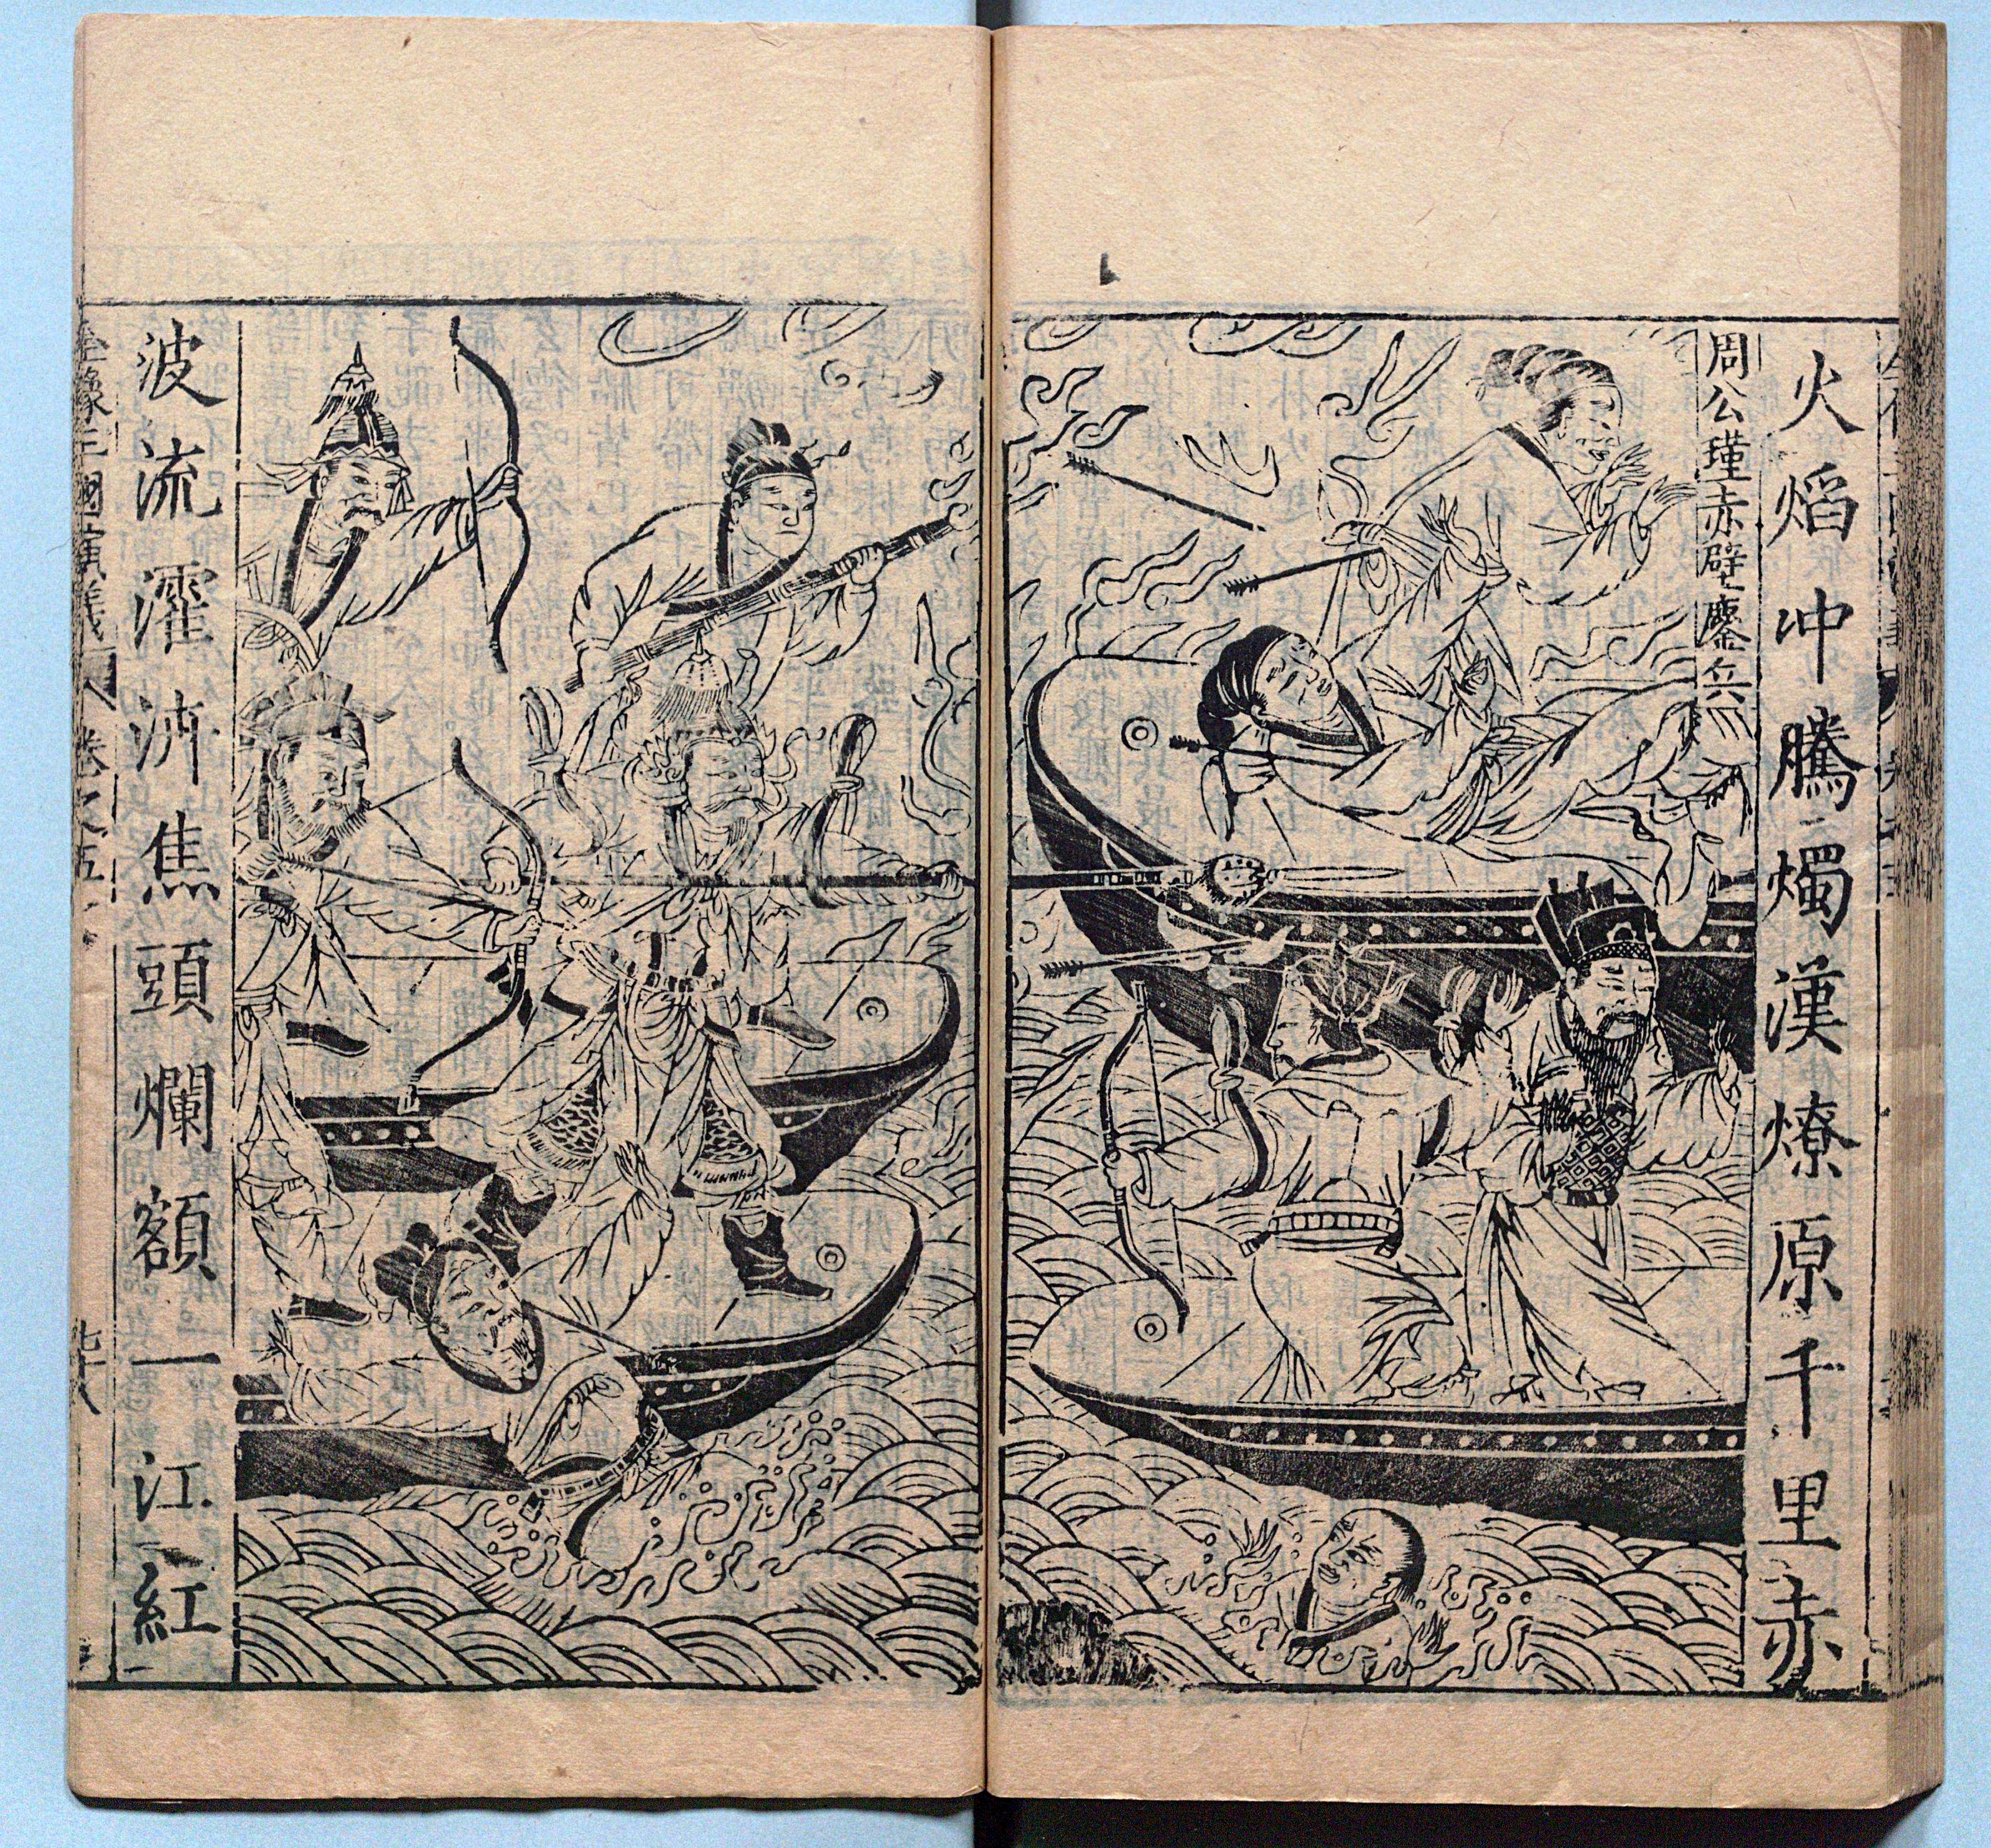 火焰冲騰燭漢燎原千里赤
周公瑾赤壁鏖兵
波流濯泋焦頭爛額一江紅
全像三國演義
卷之五
七十八